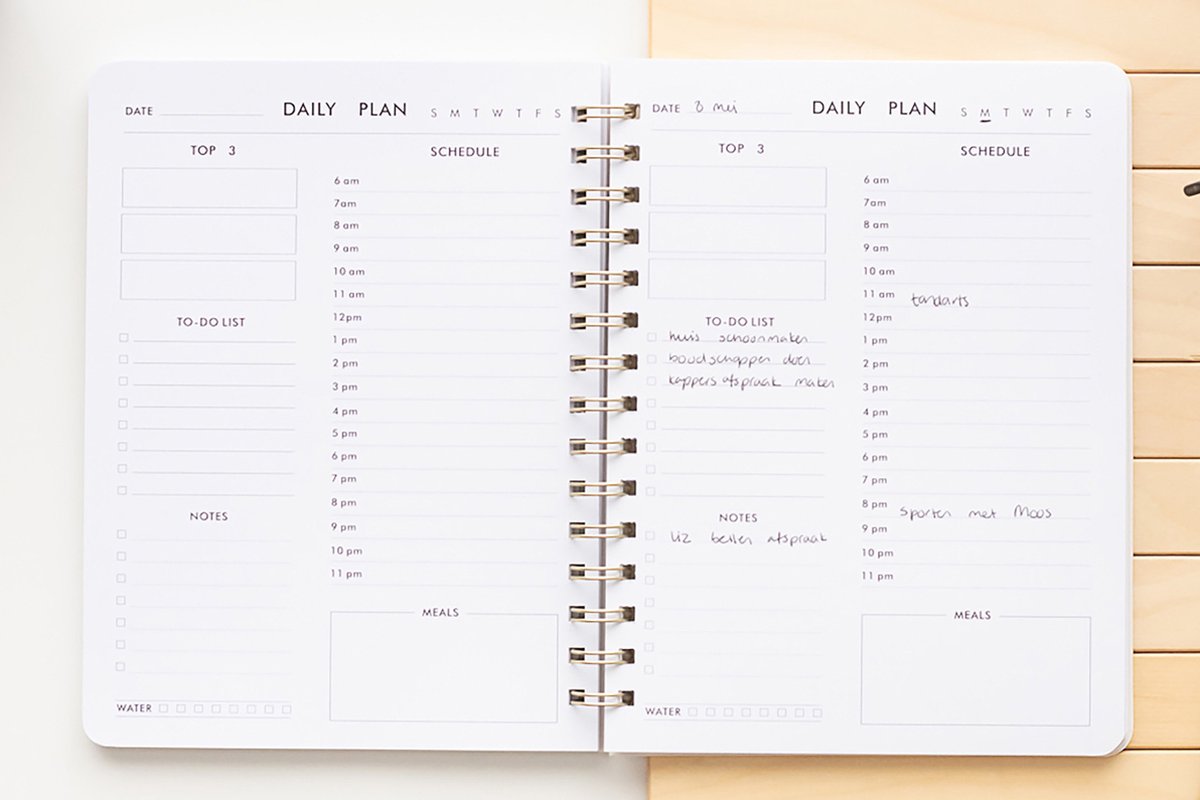 DATE DAILY PLAN S M T W T F S
TOP 3
SCHEDULE
6 am
7am
8 am
9 am
10 am
11 am
12pm
1 pm
2 pm
3 pm
4 pm
5 pm
6 pm
7 pm
8 pm
9 pm
10 pm
11 pm
TO-DO LIST
NOTES
MEALS
WATER
DATE 8 mei DAILY PLAN S M T W T F S
TOP 3
SCHEDULE
6 am
7am
8 am
9 am
10 am
11 am tandarts
12pm
1 pm
2 pm
3 pm
4 pm
5 pm
6 pm
7 pm
8 pm sporten met Moos
9 pm
10 pm
11 pm
TO-DO LIST
huis schoonmaken
boodschappen doen
kappersafspraak maken
NOTES
Liz bellen afspraak
MEALS
WATER